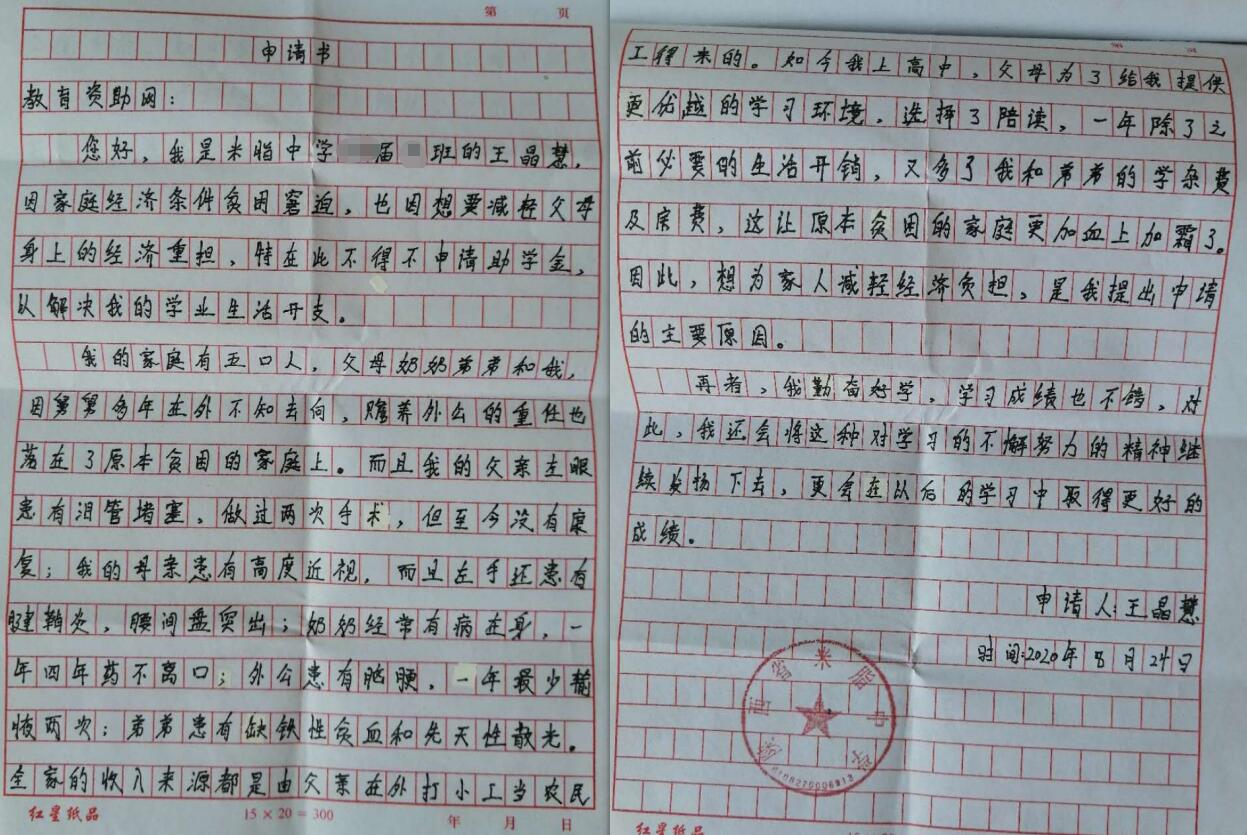 第 页
申请书
教育资助网：
您好，我是米脂中学 届 班的王晶慧，
因家庭经济条件贫困窘迫，也因想要减轻父母
身上的经济重担，特在此不得不申请助学金，
以解决我的学业生活开支。
我的家庭有五口人，父母奶奶弟弟和我，
因舅舅多年在外不知去向，赡养外公的重任也
落在了原本贫困的家庭上。而且我的父亲左眼
患有泪管堵塞，做过两次手术，但至今没有康
复；我的母亲患有高度近视，而且左手还患有
腱鞘炎，腰间盘突出；奶奶经常有病在身，一
年四年药不离口；外公患有脑梗，一年最少输
液两次；弟弟患有缺铁性贫血和先天性散光。
全家的收入来源都是由父亲在外打小工当农民
红星纸品 15×20=300 年 月 日
第 页
工得来的。如今我上高中，父母为了给我提供
更优越的学习环境，选择了陪读，一年除了之
前必要的生活开销，又多了我和弟弟的学杂费
及房费，这让原本贫困的家庭更加血上加霜了。
因此，想为家人减轻经济负担，是我提出申请
的主要原因。
再者，我勤奋好学，学习成绩也不错，对
此，我还会将这种对学习的不懈努力的精神继
续发扬下去，更会在以后的学习中取得更好的
成绩。
申请人：王晶慧
时间：2020年8月24日
陕西省米脂中学
红星纸品